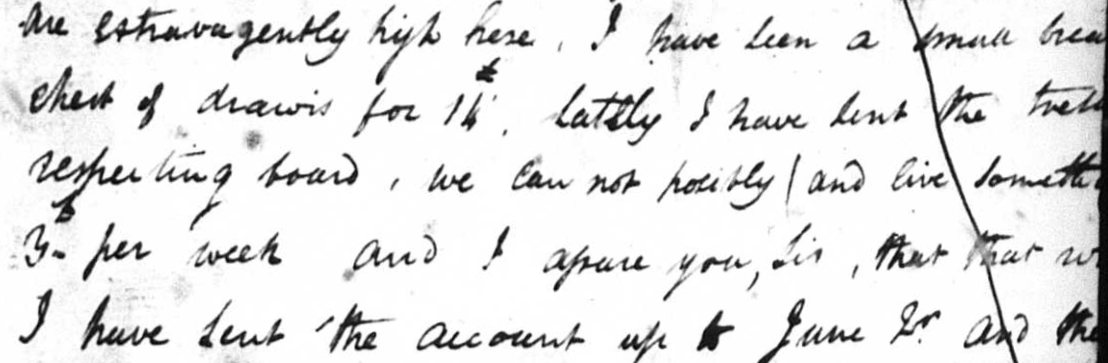 are extravagently high here, I have seen a small
chest of drawis for 14 Lately I have sent the
respecting board, we can not posibly (and live
3 per week and I assure you, Sir, that that
I have sent the account up to June and the